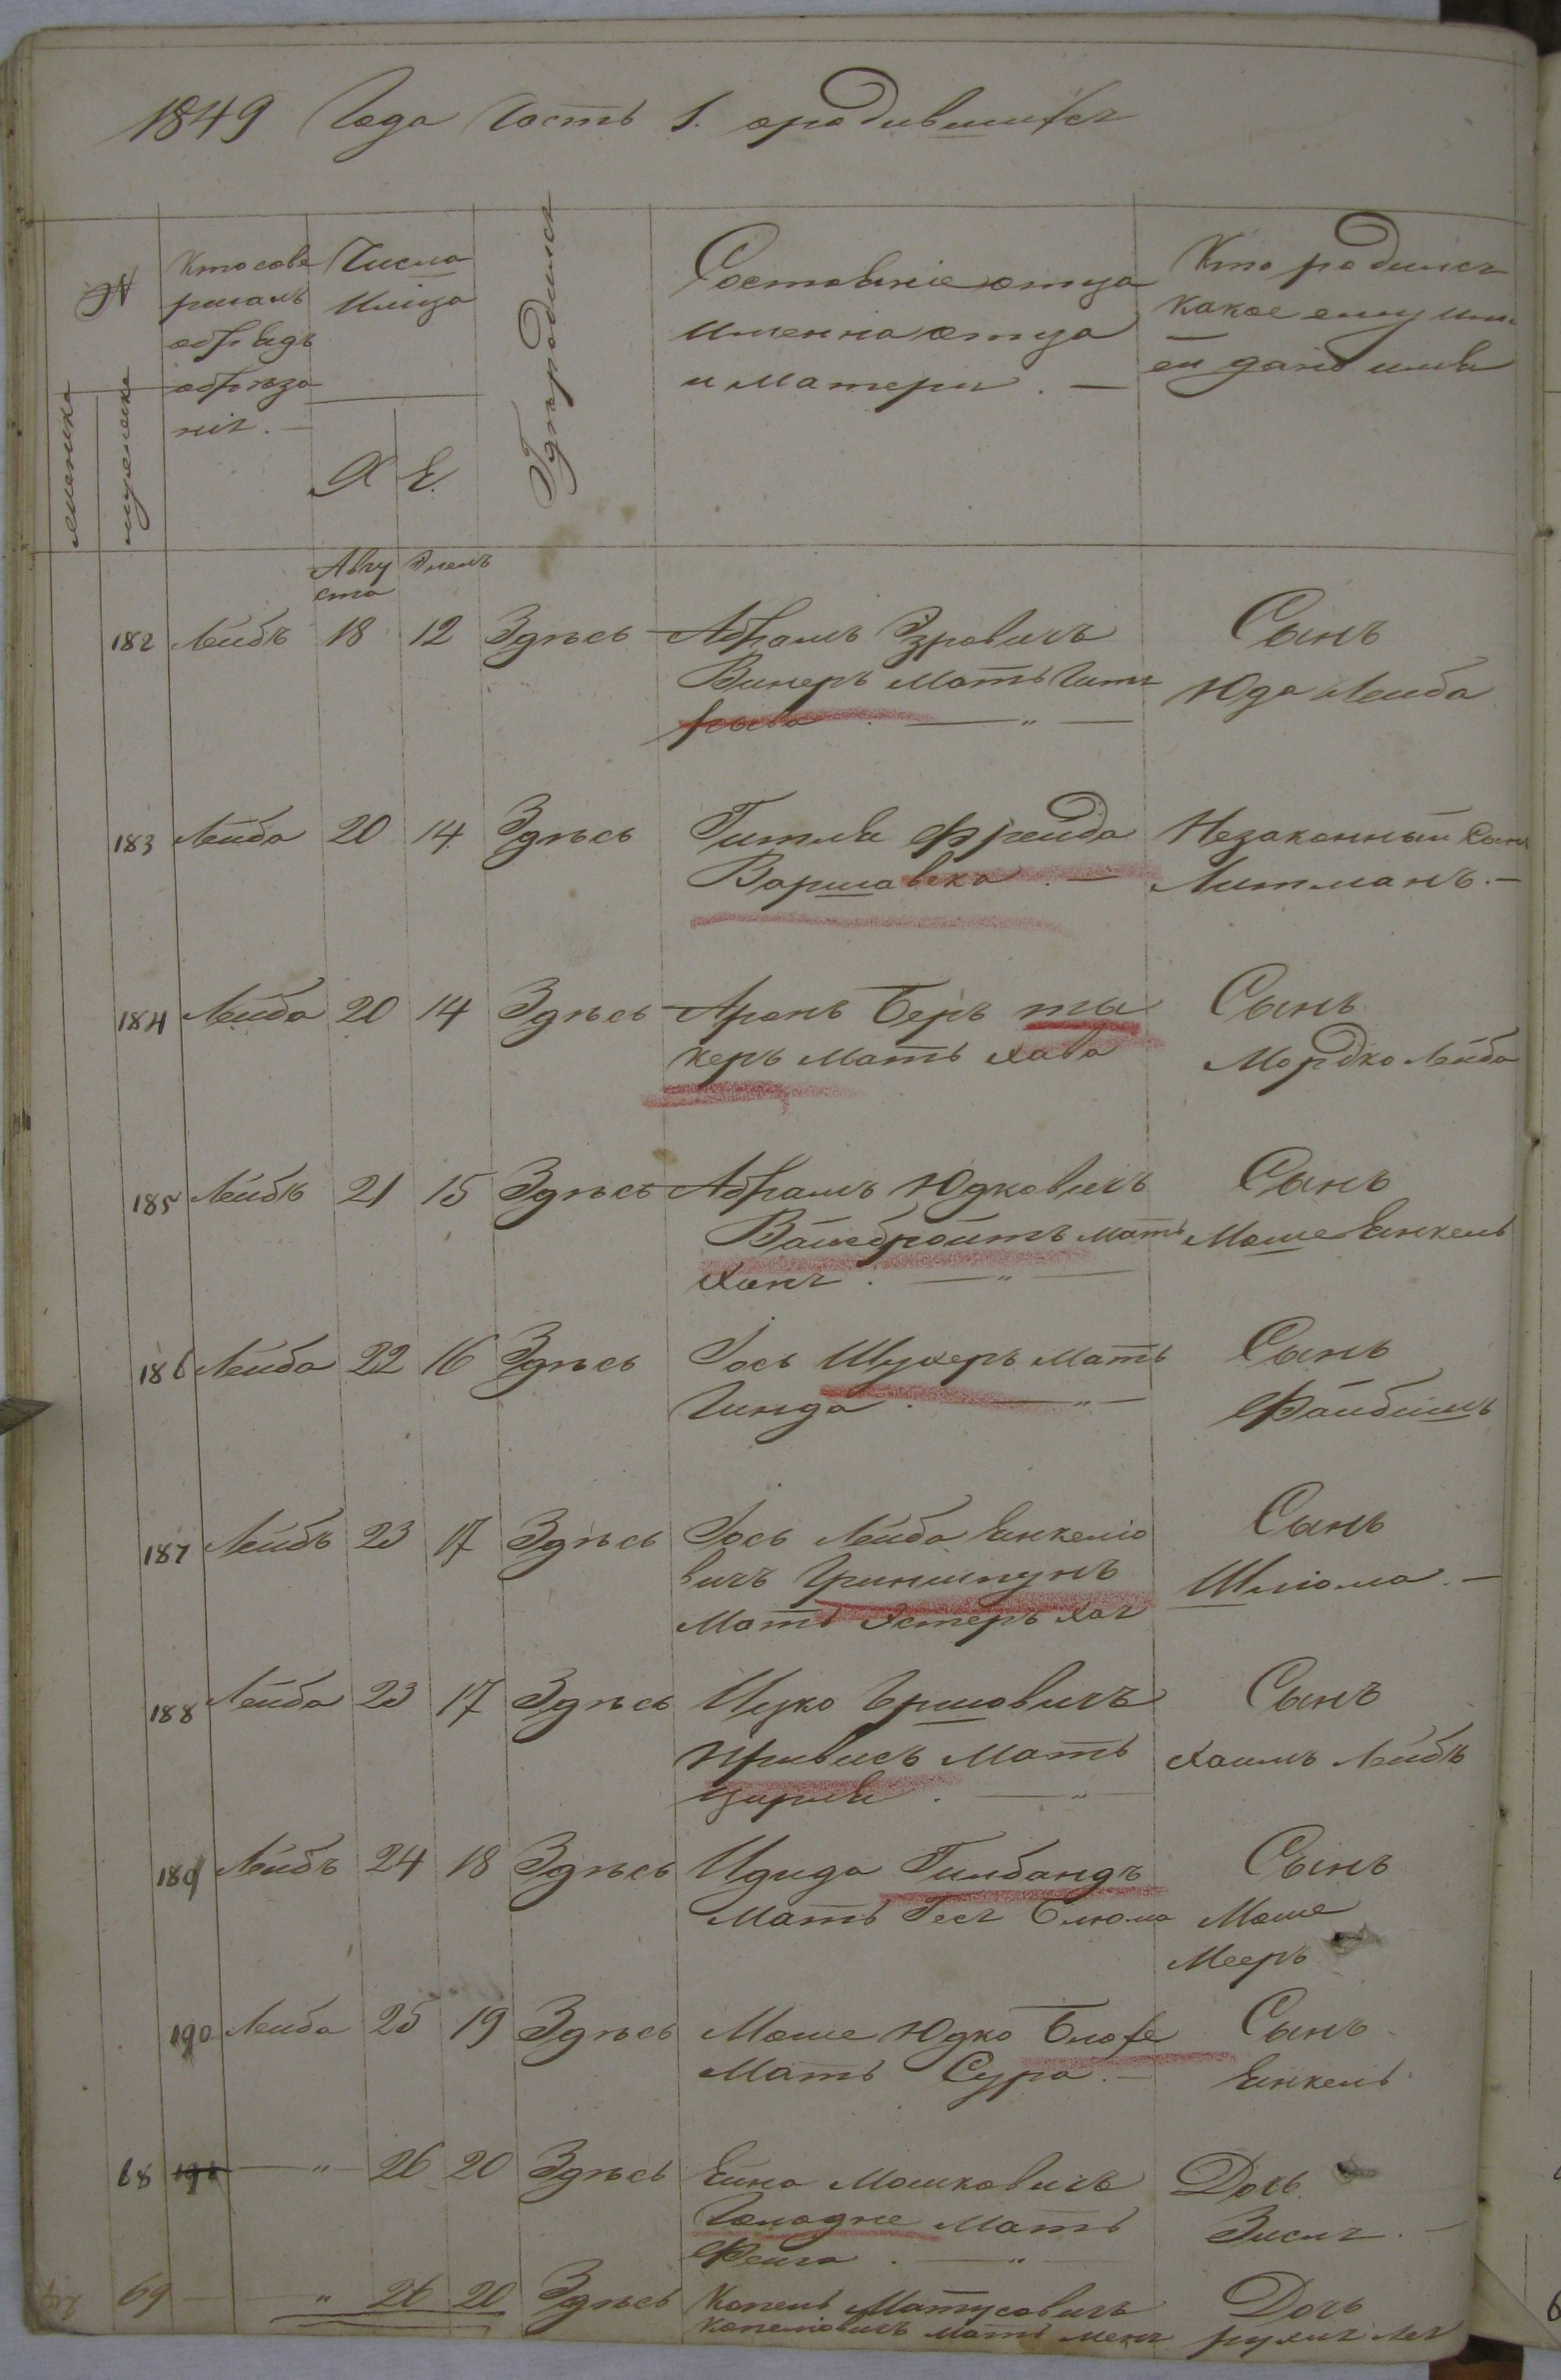 1849 Года Часть 1. ородившихся
№
женска
мужеска
Кто сове
ршалъ
обрядъ
обрѣза
нія.
Числа
Мѣсяца
Х Е.
Гдѣ родился
Состояніе отца
имена отца
и матери. —
Кто родился
какое ему или
ей дано имя
Авгу Элюль
ста
182 Лейбъ 18 12 Здѣсь Абрамъ Эзровичъ Сынъ
Винеръ мать Гитл Юда Лейба
183 Лейба 20 14 Здѣсь Гитля Фрейда Незаконный Сынъ
Варшавска. — Литманъ. —
184 Лейба 20 14 Здѣсь Аронъ Беръ ты Сынъ
керъ мать Хава Мордко Лейба
185 Лейбъ 21 15 Здѣсь Абрамъ Юдковичъ Сынъ
Вайсбройтъ мать Моше Янкель
Хана. — " —
186 Лейба 22 16 Здѣсь Іось Шухеръ мать Сынъ
Гинда. — " — Файбишъ
187 Лейбъ 23 17 Здѣсь Іось Лейба Янкеліо Сынъ
вичъ Гриншпунъ Шліома. —
Мать Эстеръ Хая
188 Лейба 23 17 Здѣсь Ицко Гершовичъ Сынъ
Кривись Мать Хаимъ Лейбъ
Цирля. — " —
189 Лейбъ 24 18 Здѣсь Идида Гилбандъ Сынъ
Мать Геся Блюма Моше
Мееръ
190 Лейба 25 19 Здѣсь Моше Юдко Блохе Сынъ
Мать Сура. — Янкель
68 191 — " — 26 20 Здѣсь Ейна Мошковичъ Дочь
Голодне Мать Зисля. —
Фейга. — " —
69 — " 26 20 Здѣсь Копель Матусовичъ Дочь
Копеліовичъ мать Меня рухля Лея